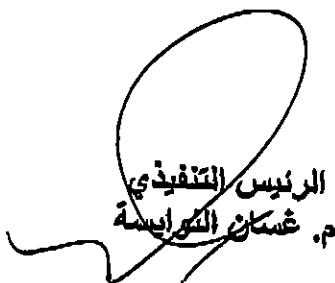 الرئيس التنفيذي
م. غسان النوايسة